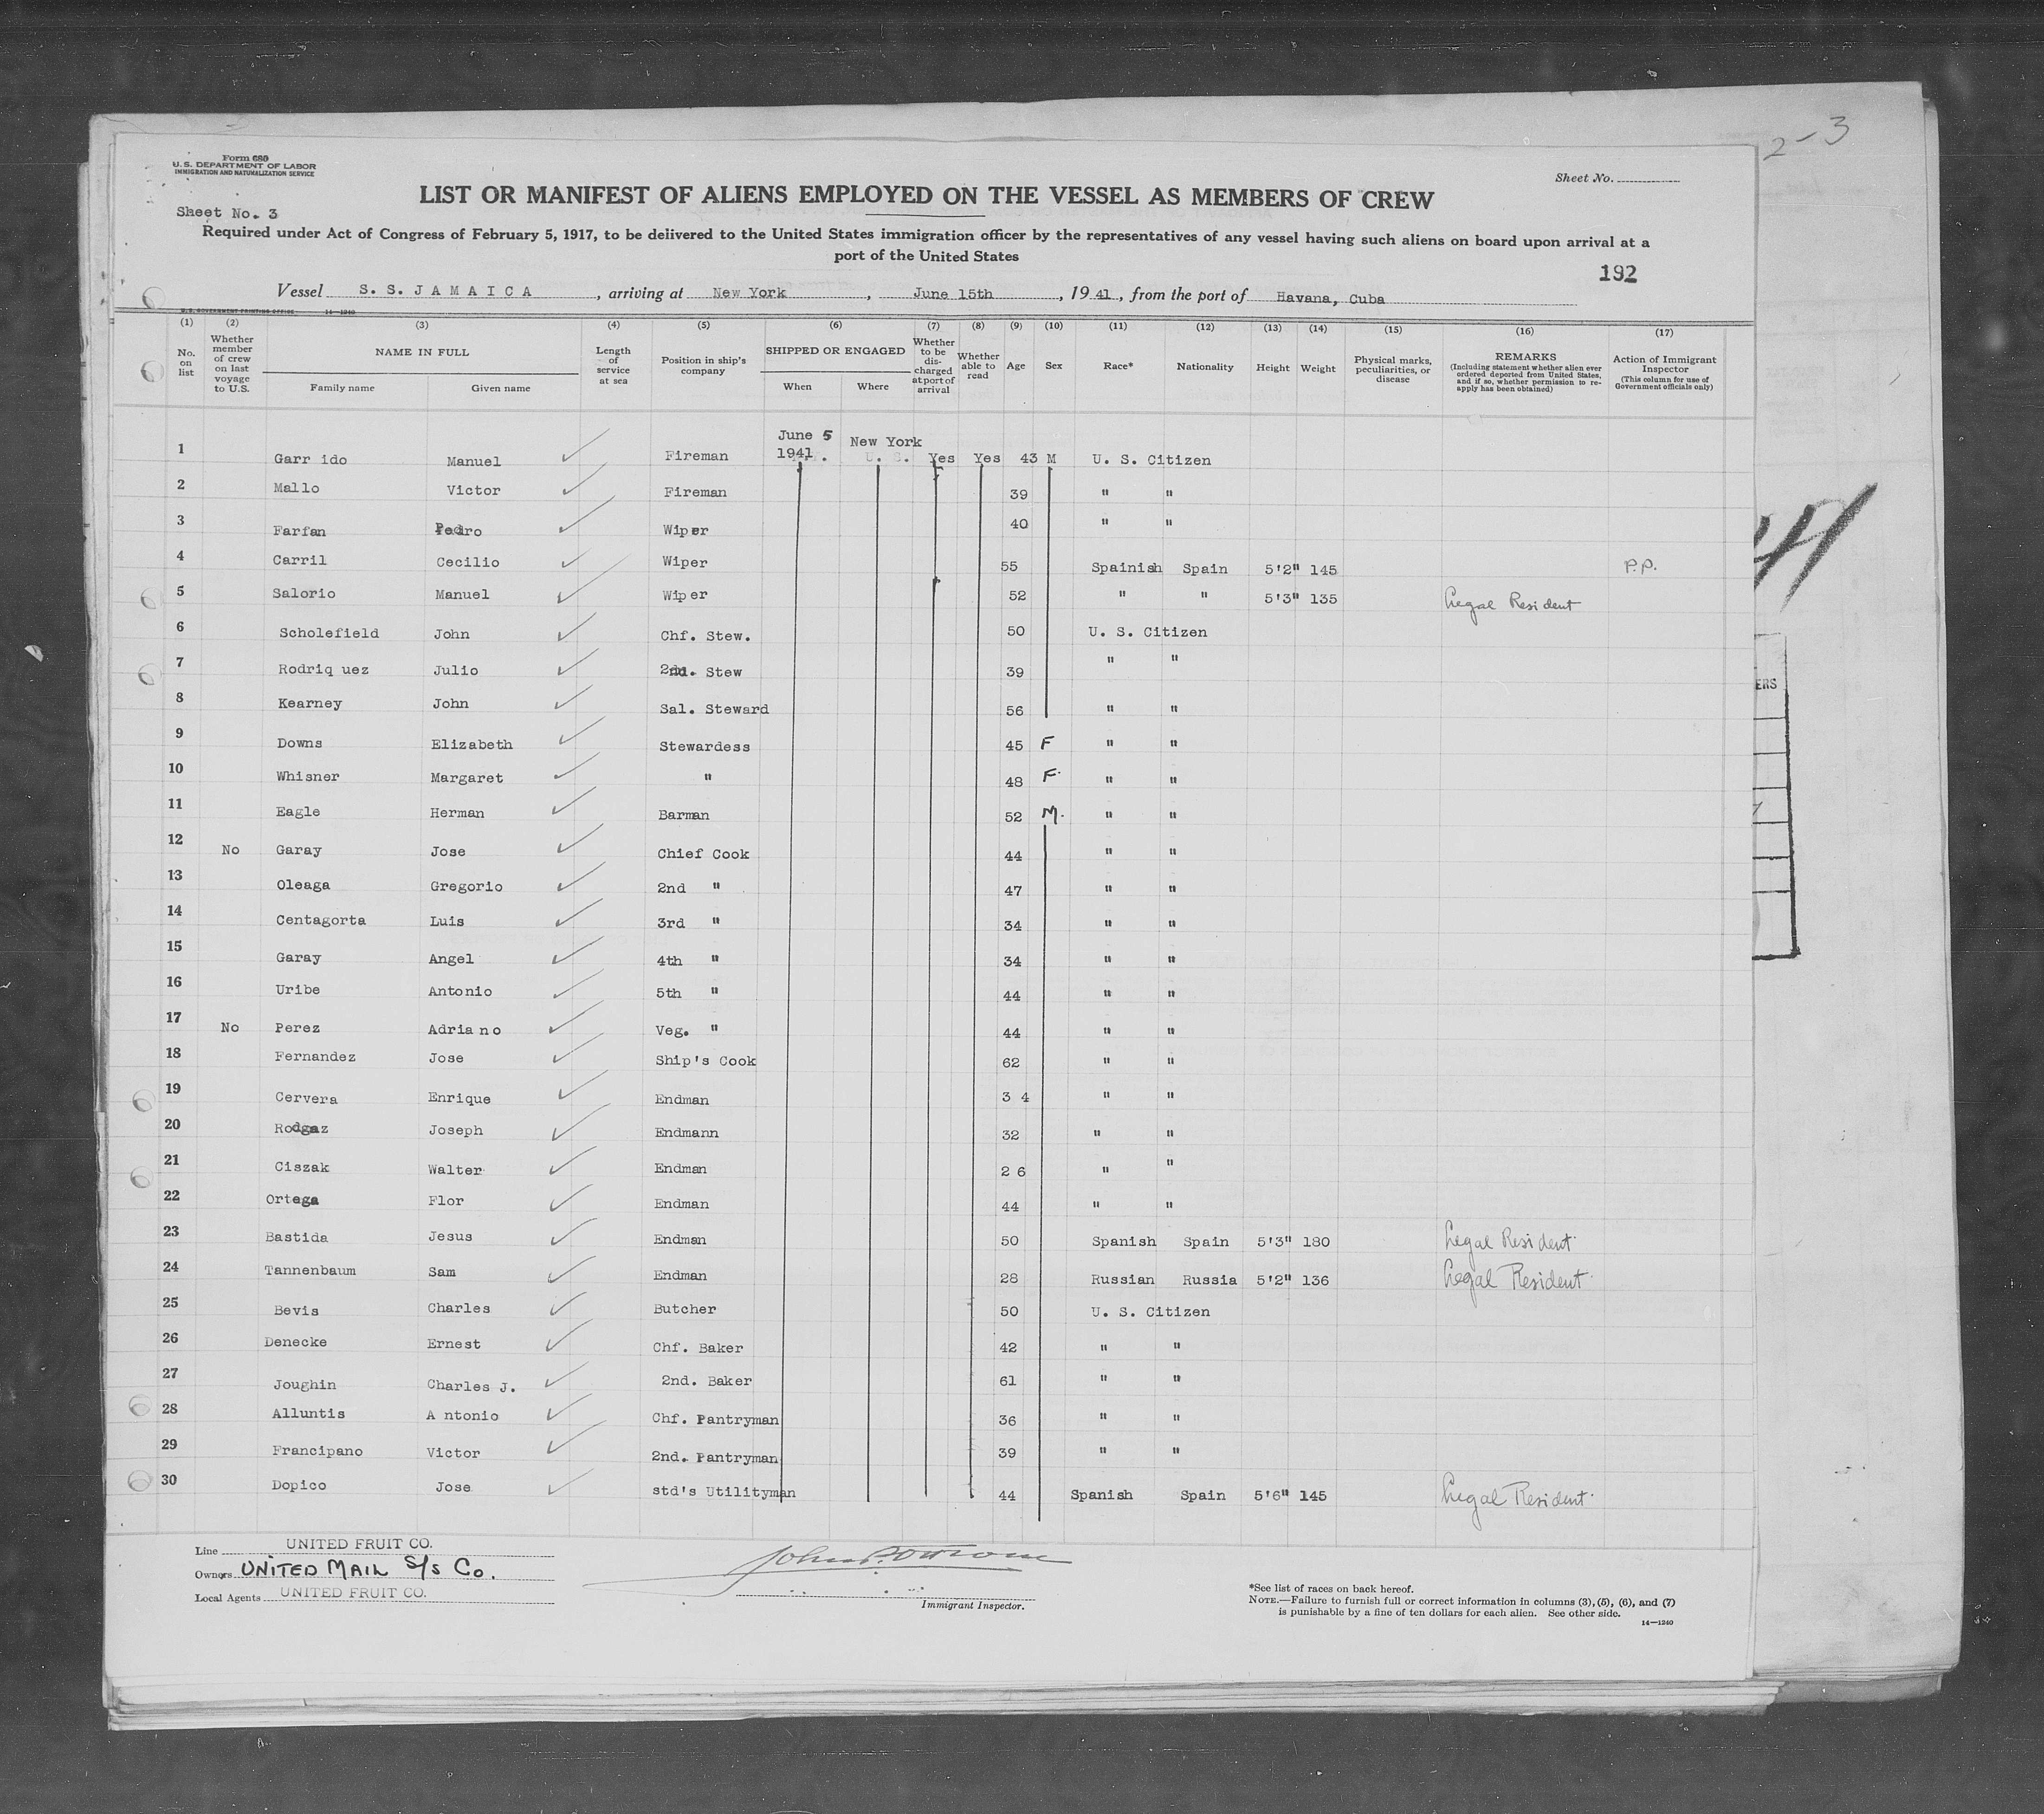 2-3
Form 680
U.S. DEPARTMENT OF LABOR
IMMIGRATION AND NATURALIZATION SERVICE
Sheet No.
LIST OR MANIFEST OF ALIENS EMPLOYED ON THE VESSEL AS MEMBERS OF CREW
Sheet No. 3
Required under Act of Congress of February 5, 1917, to be delivered to the United States immigration officer by the representatives of any vessel having such aliens on board upon arrival at a
port of the United States
192
Vessel S. S. J A M A I C A , arriving at New York , June 15th , 19 41 , from the port of Havana, Cuba
U.S. GOVERNMENT PRINTING OFFICE 14—1240
(1) (2) (3) (4) (5) (6) (7) (8) (9) (10) (11) (12) (13) (14) (15) (16) (17)
No. on list
Whether member of crew on last voyage to U.S.
NAME IN FULL
Family name Given name
Length of service at sea
Position in ship's company
SHIPPED OR ENGAGED
When Where
Whether to be discharged at port of arrival
Whether able to read
Age
Sex
Race*
Nationality
Height
Weight
Physical marks, peculiarities, or disease
REMARKS
(Including statement whether alien ever ordered deported from United States, and if so, whether permission to reapply has been obtained)
Action of Immigrant Inspector
(This column for use of Government officials only)
1 Garr ido Manuel Fireman June 5 1941. New York U. S. Yes Yes 43 M U. S. Citizen
2 Mallo Victor Fireman 39 " "
3 Farfan Pedro Wiper 40 " "
4 Carril Cecilio Wiper 55 Spainish Spain 5'2" 145 P.P.
5 Salorio Manuel Wiper 52 " " 5'3" 135 Legal Resident
6 Scholefield John Chf. Stew. 50 U. S. Citizen
7 Rodriq uez Julio 2nd. Stew 39 " "
8 Kearney John Sal. Steward 56 " "
9 Downs Elizabeth Stewardess 45 F " "
10 Whisner Margaret " 48 F. " "
11 Eagle Herman Barman 52 M. " "
12 No Garay Jose Chief Cook 44 " "
13 Oleaga Gregorio 2nd " 47 " "
14 Centagorta Luis 3rd " 34 " "
15 Garay Angel 4th " 34 " "
16 Uribe Antonio 5th " 44 " "
17 No Perez Adria no Veg. " 44 " "
18 Fernandez Jose Ship's Cook 62 " "
19 Cervera Enrique Endman 3 4 " "
20 Rodgaz Joseph Endmann 32 " "
21 Ciszak Walter Endman 2 6 " "
22 Ortega Flor Endman 44 " "
23 Bastida Jesus Endman 50 Spanish Spain 5'3" 180 Legal Resident
24 Tannenbaum Sam Endman 28 Russian Russia 5'2" 136 Legal Resident
25 Bevis Charles Butcher 50 U. S. Citizen
26 Denecke Ernest Chf. Baker 42 " "
27 Joughin Charles J. 2nd. Baker 61 " "
28 Alluntis A ntonio Chf. Pantryman 36 " "
29 Francipano Victor 2nd. Pantryman 39 " "
30 Dopico Jose std's Utilityman 44 Spanish Spain 5'6" 145 Legal Resident
Line UNITED FRUIT CO.
Owners UNITED MAIL S/S CO.
Local Agents UNITED FRUIT CO.
Immigrant Inspector.
*See list of races on back hereof.
NOTE.—Failure to furnish full or correct information in columns (3), (5), (6), and (7)
is punishable by a fine of ten dollars for each alien. See other side.
14—1240
41
ERS